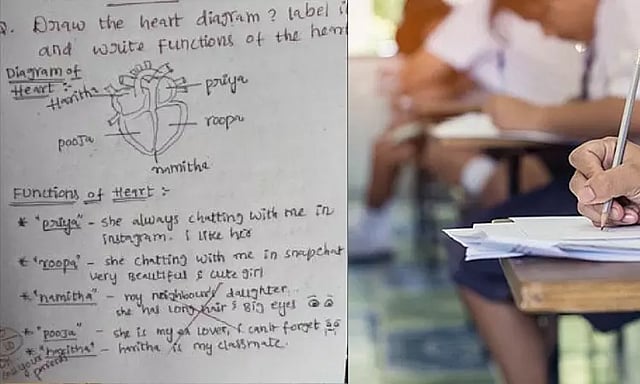 Q. Draw the heart diagram? label i
and write functions of the hear
Diagram of
Heart :-
Haritha
priya
roopa
pooja
namitha
Functions of Heart :-
* "priya" - she always chatting with me in
instagram. i like her
* "roopa" - she chatting with me in snapchat
very beautiful & cute girl
* "namitha" - my neighbour's daughter..
she has long hair & Big eyes
* "pooja" - she is my ex lover, i can't forget
* "haritha" - haritha is my classmate.
your
parents